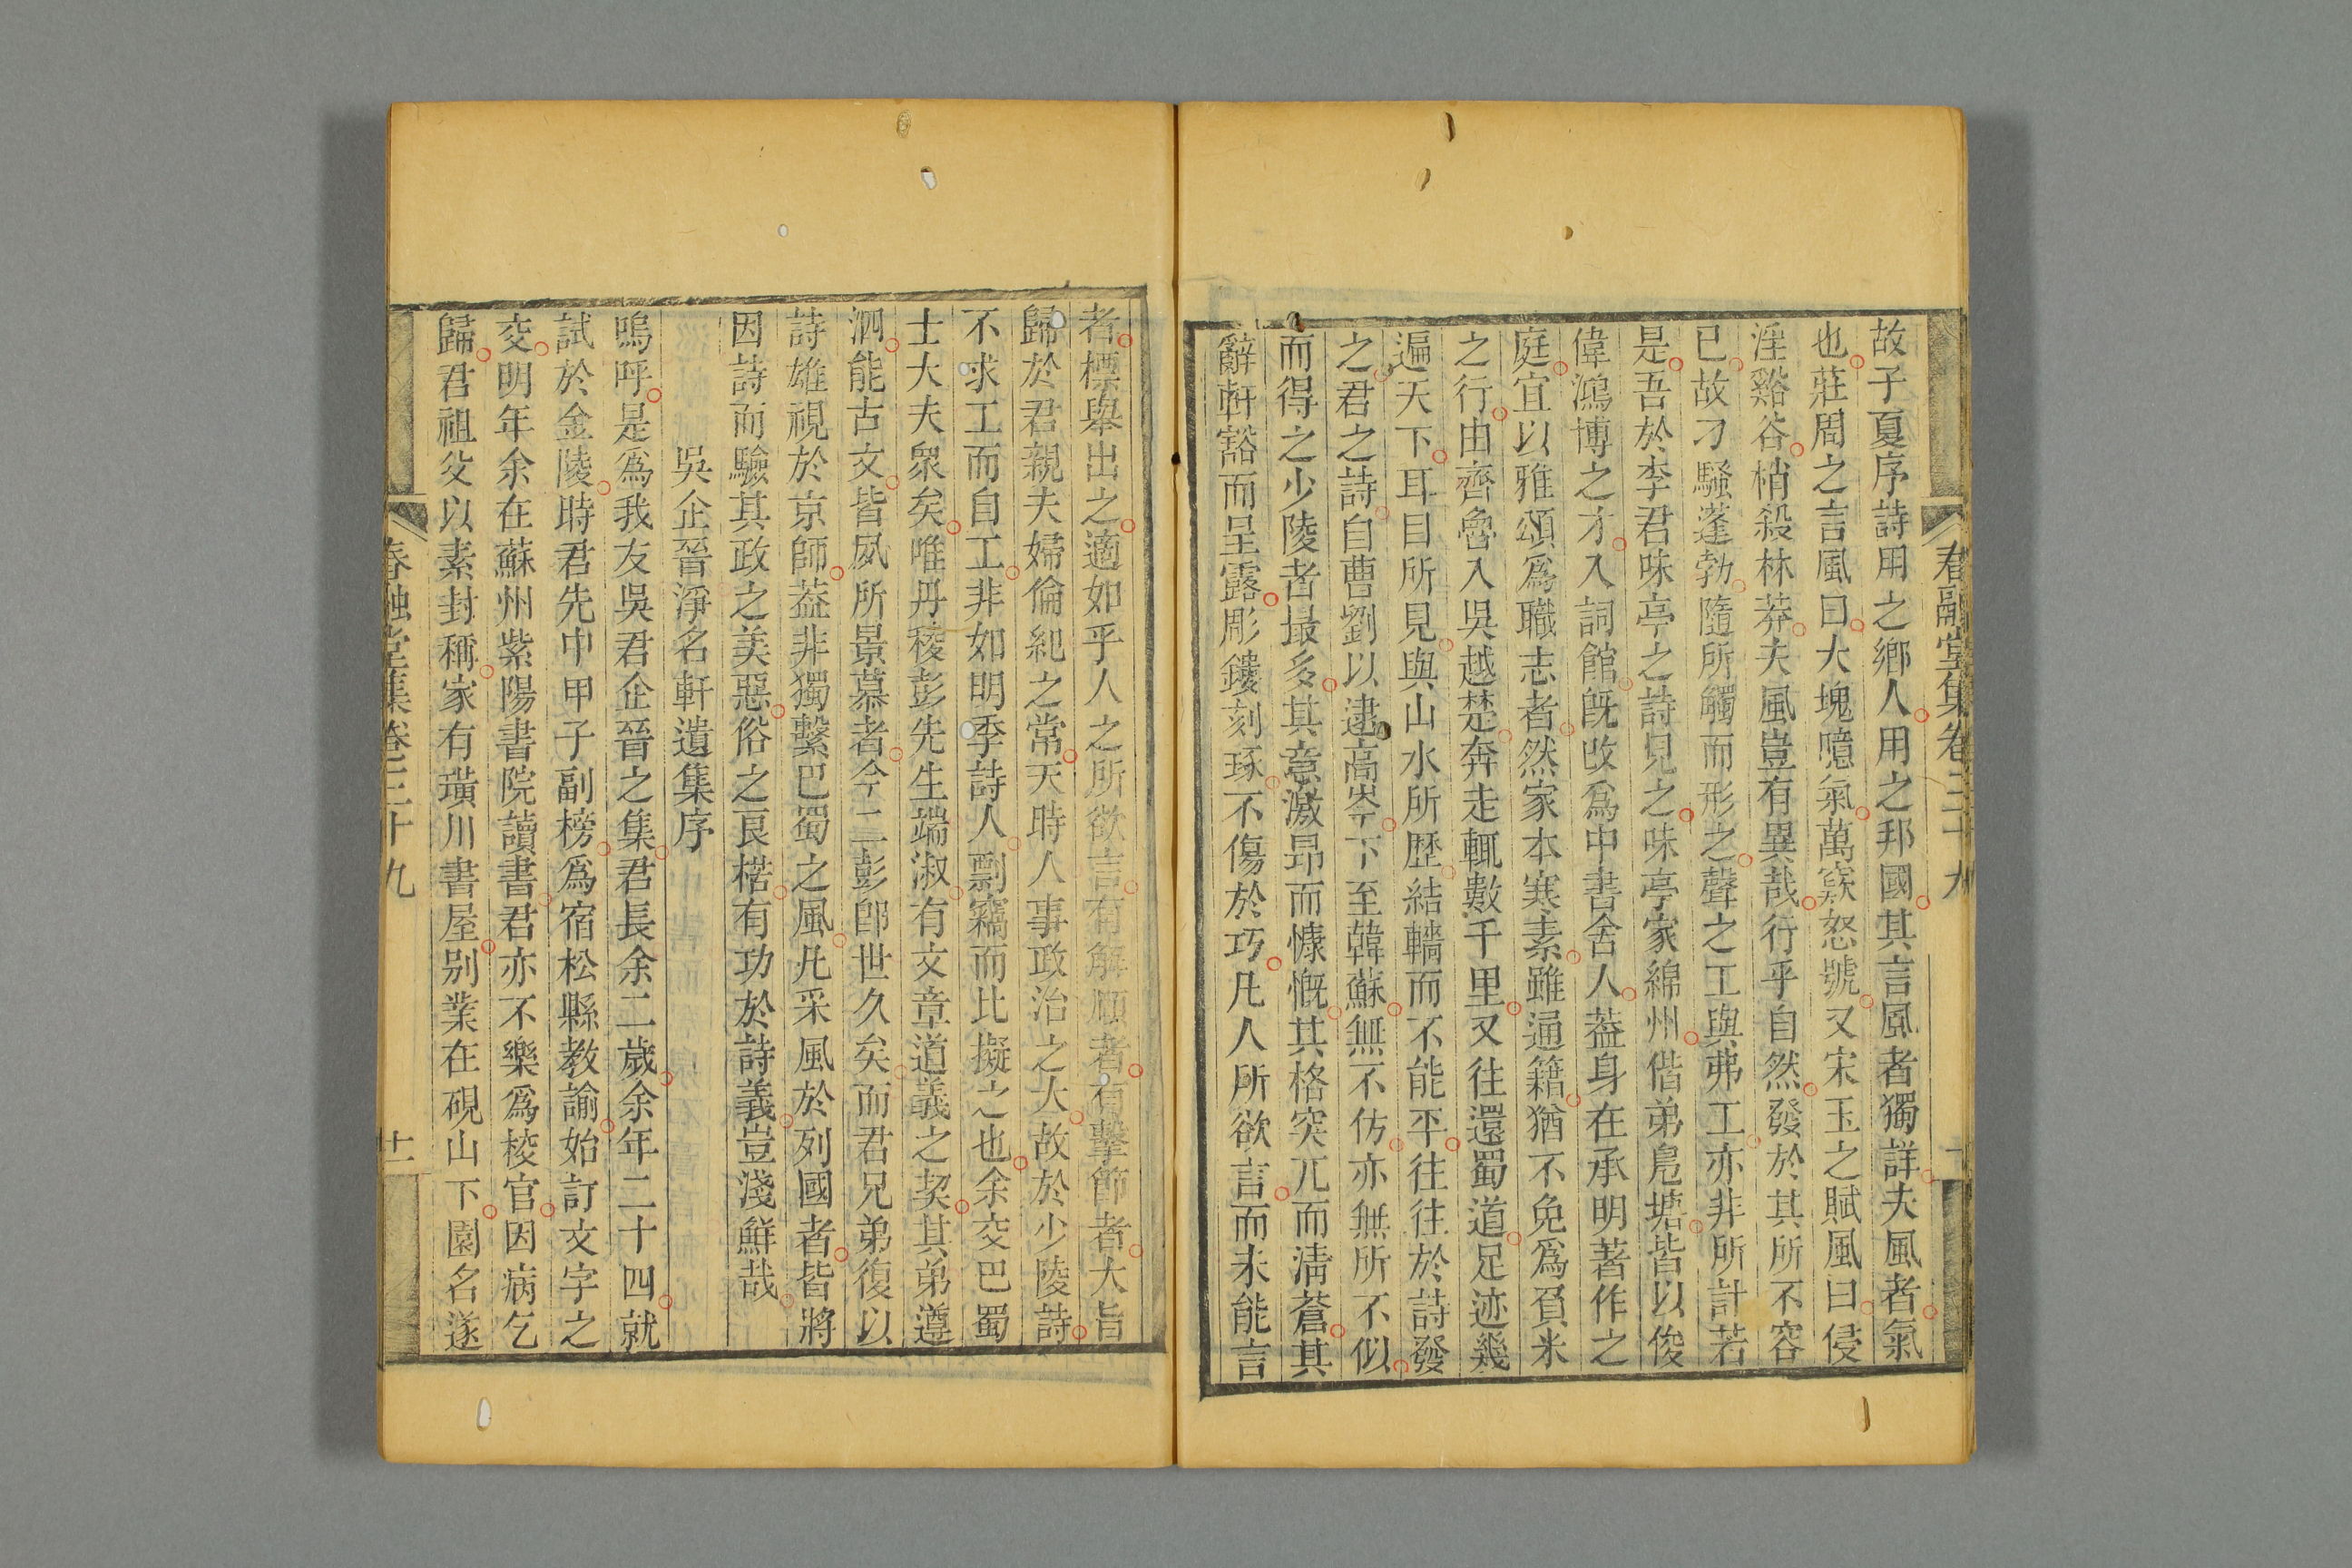 春融堂集卷三十九
故子夏序詩用之鄉人用之邦國其言風者獨詳夫風者氣
也莊周之言風曰大塊噫氣萬竅怒號又宋玉之賦風曰侵
淫谿谷梢殺林莽夫風豈有異哉行乎自然發於其所不容
已故刁騷蓬勃隨所觸而形之聲之工與弗工亦非所計若
是吾於李君味亭之詩見之味亭家綿州偕弟鳧塘皆以俊
偉鴻博之才入詞館既改爲中書舍人葢身在承明著作之
庭宜以雅頌爲職志者然家本寒素雖通籍猶不免爲負米
之行由齊魯入吳越楚奔走輒數千里又往還蜀道足迹幾
遍天下耳目所見與山水所歴結轖而不能平往往於詩發
之君之詩自曹劉以逮高岑下至韓蘇無不仿亦無所不似
而得之少陵者最多其意激昂而慷慨其格突兀而淸蒼其
辭軒豁而呈露彫鏤刻琢不傷於巧凡人所欲言而未能言
者標舉出之適如乎人之所欲言有解頤者有擊節者大旨
歸於君親夫婦倫紀之常天時人事政治之大故於少陵詩
不求工而自工非如明季詩人剽竊而比擬之也余交巴蜀
士大夫衆矣唯丹稜彭先生端淑有文章道義之契其弟遵
泗能古文皆夙所景慕者今二彭卽世久矣而君兄弟復以
詩雄視於京師葢非獨繫巴蜀之風凡采風於列國者皆將
因詩而驗其政之美惡俗之良楛有功於詩義豈淺鮮哉
吳企晉淨名軒遺集序
嗚呼是爲我友吳君企晉之集君長余二歲余年二十四就
試於金陵時君先中甲子副榜爲宿松縣教諭始訂文字之
交明年余在蘇州紫陽書院讀書君亦不樂爲校官因病乞
歸君祖父以素封稱家有璜川書屋別業在硯山下園名遂
春融堂集卷三十九
十一